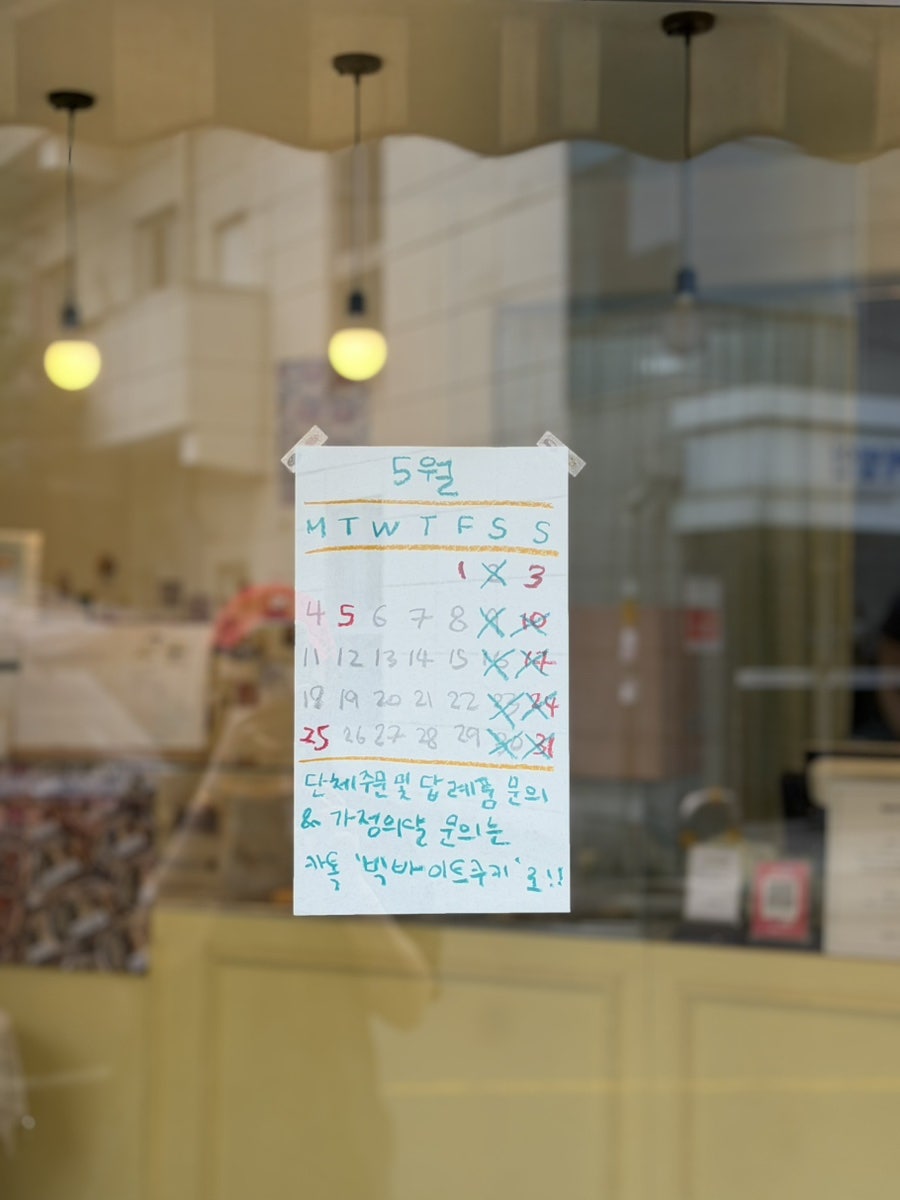 5월
M T W T F S S
1 2 3
4 5 6 7 8 9 10
11 12 13 14 15 16 17
18 19 20 21 22 23 24
25 26 27 28 29 30 31
단체주문 및 답례품 문의
& 가정의달 문의는
카톡 '빅바이트쿠키'로!!